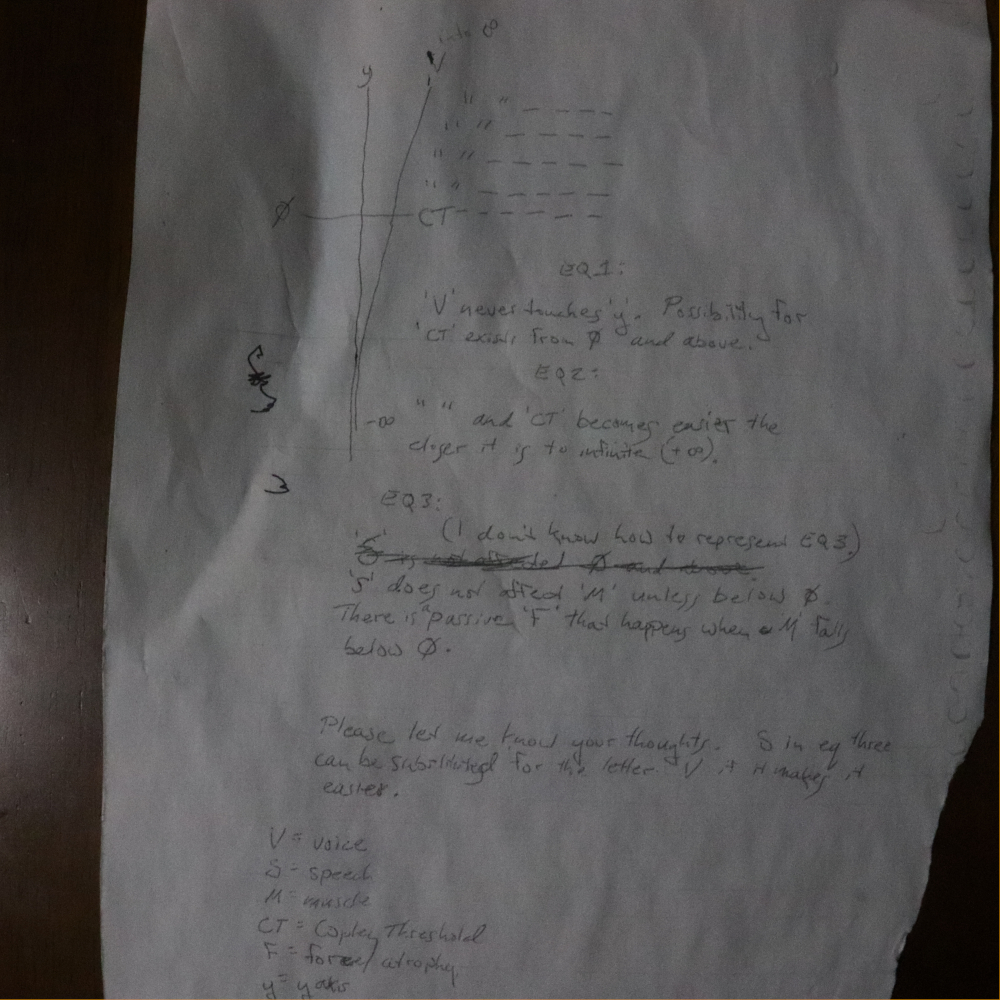 into ∞
y V
" " — — — —
" " — — — —
" " — — — — —
" " — — — — —
Ø CT - - - - - -
EQ1:
'V' never touches 'y'. Possibility for
'CT' exists from Ø and above.
EQ2:
-∞ " " and 'CT' becomes easier the
closer it is to infinite (+∞).
3
EQ3:
(I don't know how to represent EQ3.)
'S' does not affect 'M' unless below Ø.
There is a passive 'F' that happens when 'M' falls
below Ø.
Please let me know your thoughts. S in eq three
can be substituted for the letter V if it makes it
easier.
V = voice
S = speech
M = muscle
CT = Threshold
F = force/atrophy
y = y axis